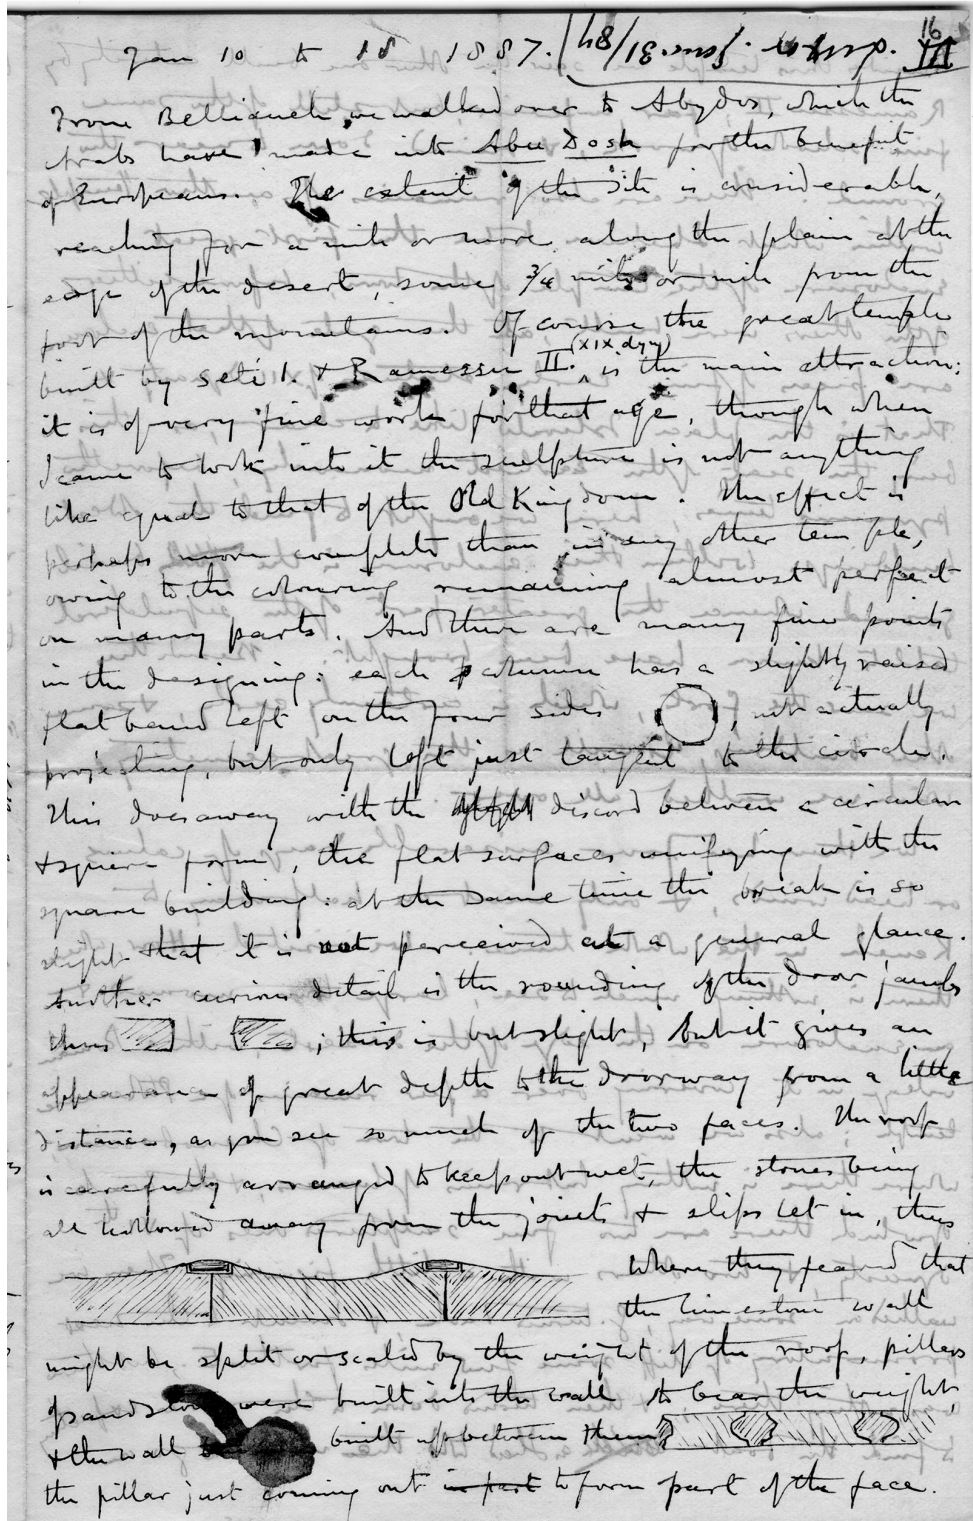 16
III
Luxor. Jan. 31/87
Jan 10 to 18 1887.
From Bellianeh we walked over to Abydos, which the
Arabs have made into Abu Dosh for the benefit
of Europeans. The extent of the site is considerable,
reaching for a mile or more along the plain at the
edge of the desert, some 3/4 mile or mile from the
foot of the mountains. Of course the great temple
built by Seti I. & Ramessu II. (XIX dyn) is the main attraction:
it is of very fine work for that age, though when
I came to look into it the sculpture is not anything
like equal to that of the Old Kingdom. The effect is
perhaps more complete than in any other temple,
owing to the colouring remaining almost perfect
on many parts. And there are many fine points
in the designing: each column has a slightly raised
flat band left on the four sides , not actually
projecting, but only left just tangent to the circle.
This does away with the discord between a circular
& square form, the flat surfaces unifying with the
square building: at the same time the break is so
slight that it is not perceived at a general glance.
Another curious detail is the rounding of the door jambs
thus ; this is but slight, but it gives an
appearance of great depth to the doorway from a little
distance, as you see so much of the two faces. The roof
is carefully arranged to keep out wet, the stones being
all hollowed away from the joints & slips let in, thus
Where they feared that
the limestone wall
might be split or scaled by the weight of the roof, pillars
of sandstone were built into the wall to bear the weight,
& the wall built up between them
the pillar just coming out in part to form part of the face.